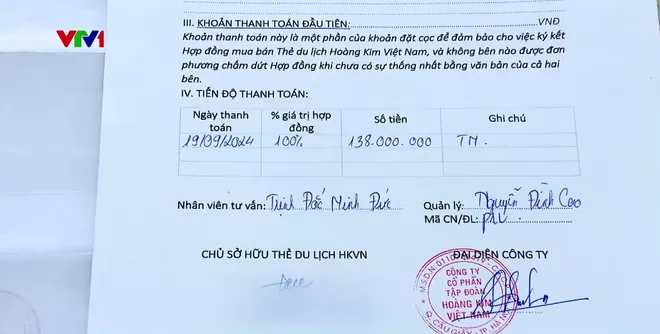 VTV1
III. KHOẢN THANH TOÁN ĐẦU TIÊN: VNĐ
Khoản thanh toán này là một phần của khoản đặt cọc để đảm bảo cho việc ký kết
Hợp đồng mua bán Thẻ du lịch Hoàng Kim Việt Nam, và không bên nào được đơn
phương chấm dứt Hợp đồng khi chưa có sự thống nhất bằng văn bản của cả hai
bên.
IV. TIẾN ĐỘ THANH TOÁN:
Ngày thanh toán % giá trị hợp đồng Số tiền Ghi chú
19/09/2024 100% 138.000.000 TM.
Nhân viên tư vấn: Trịnh Đắc Minh Đức Quản lý: Nguyễn Đình Cao
Mã CN/ĐL:
CHỦ SỞ HỮU THẺ DU LỊCH HKVN ĐẠI DIỆN CÔNG TY
CÔNG TY
CỔ PHẦN
TẬP ĐOÀN
HOÀNG KIM
VIỆT NAM